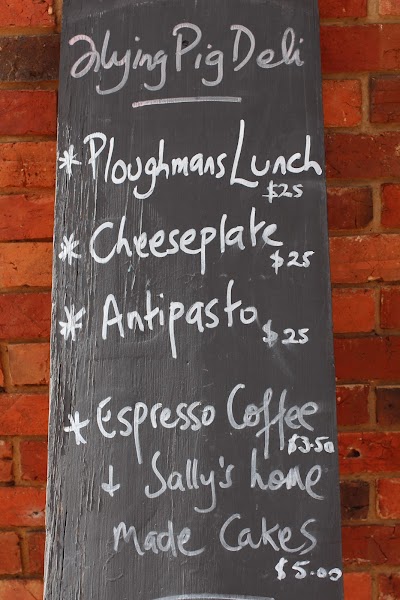 Flying Pig Deli
* Ploughmans Lunch
$25
* Cheeseplate
$25
* Antipasto
$25
* Espresso Coffee
$3.50
+ Sally's home
made Cakes
$5.00